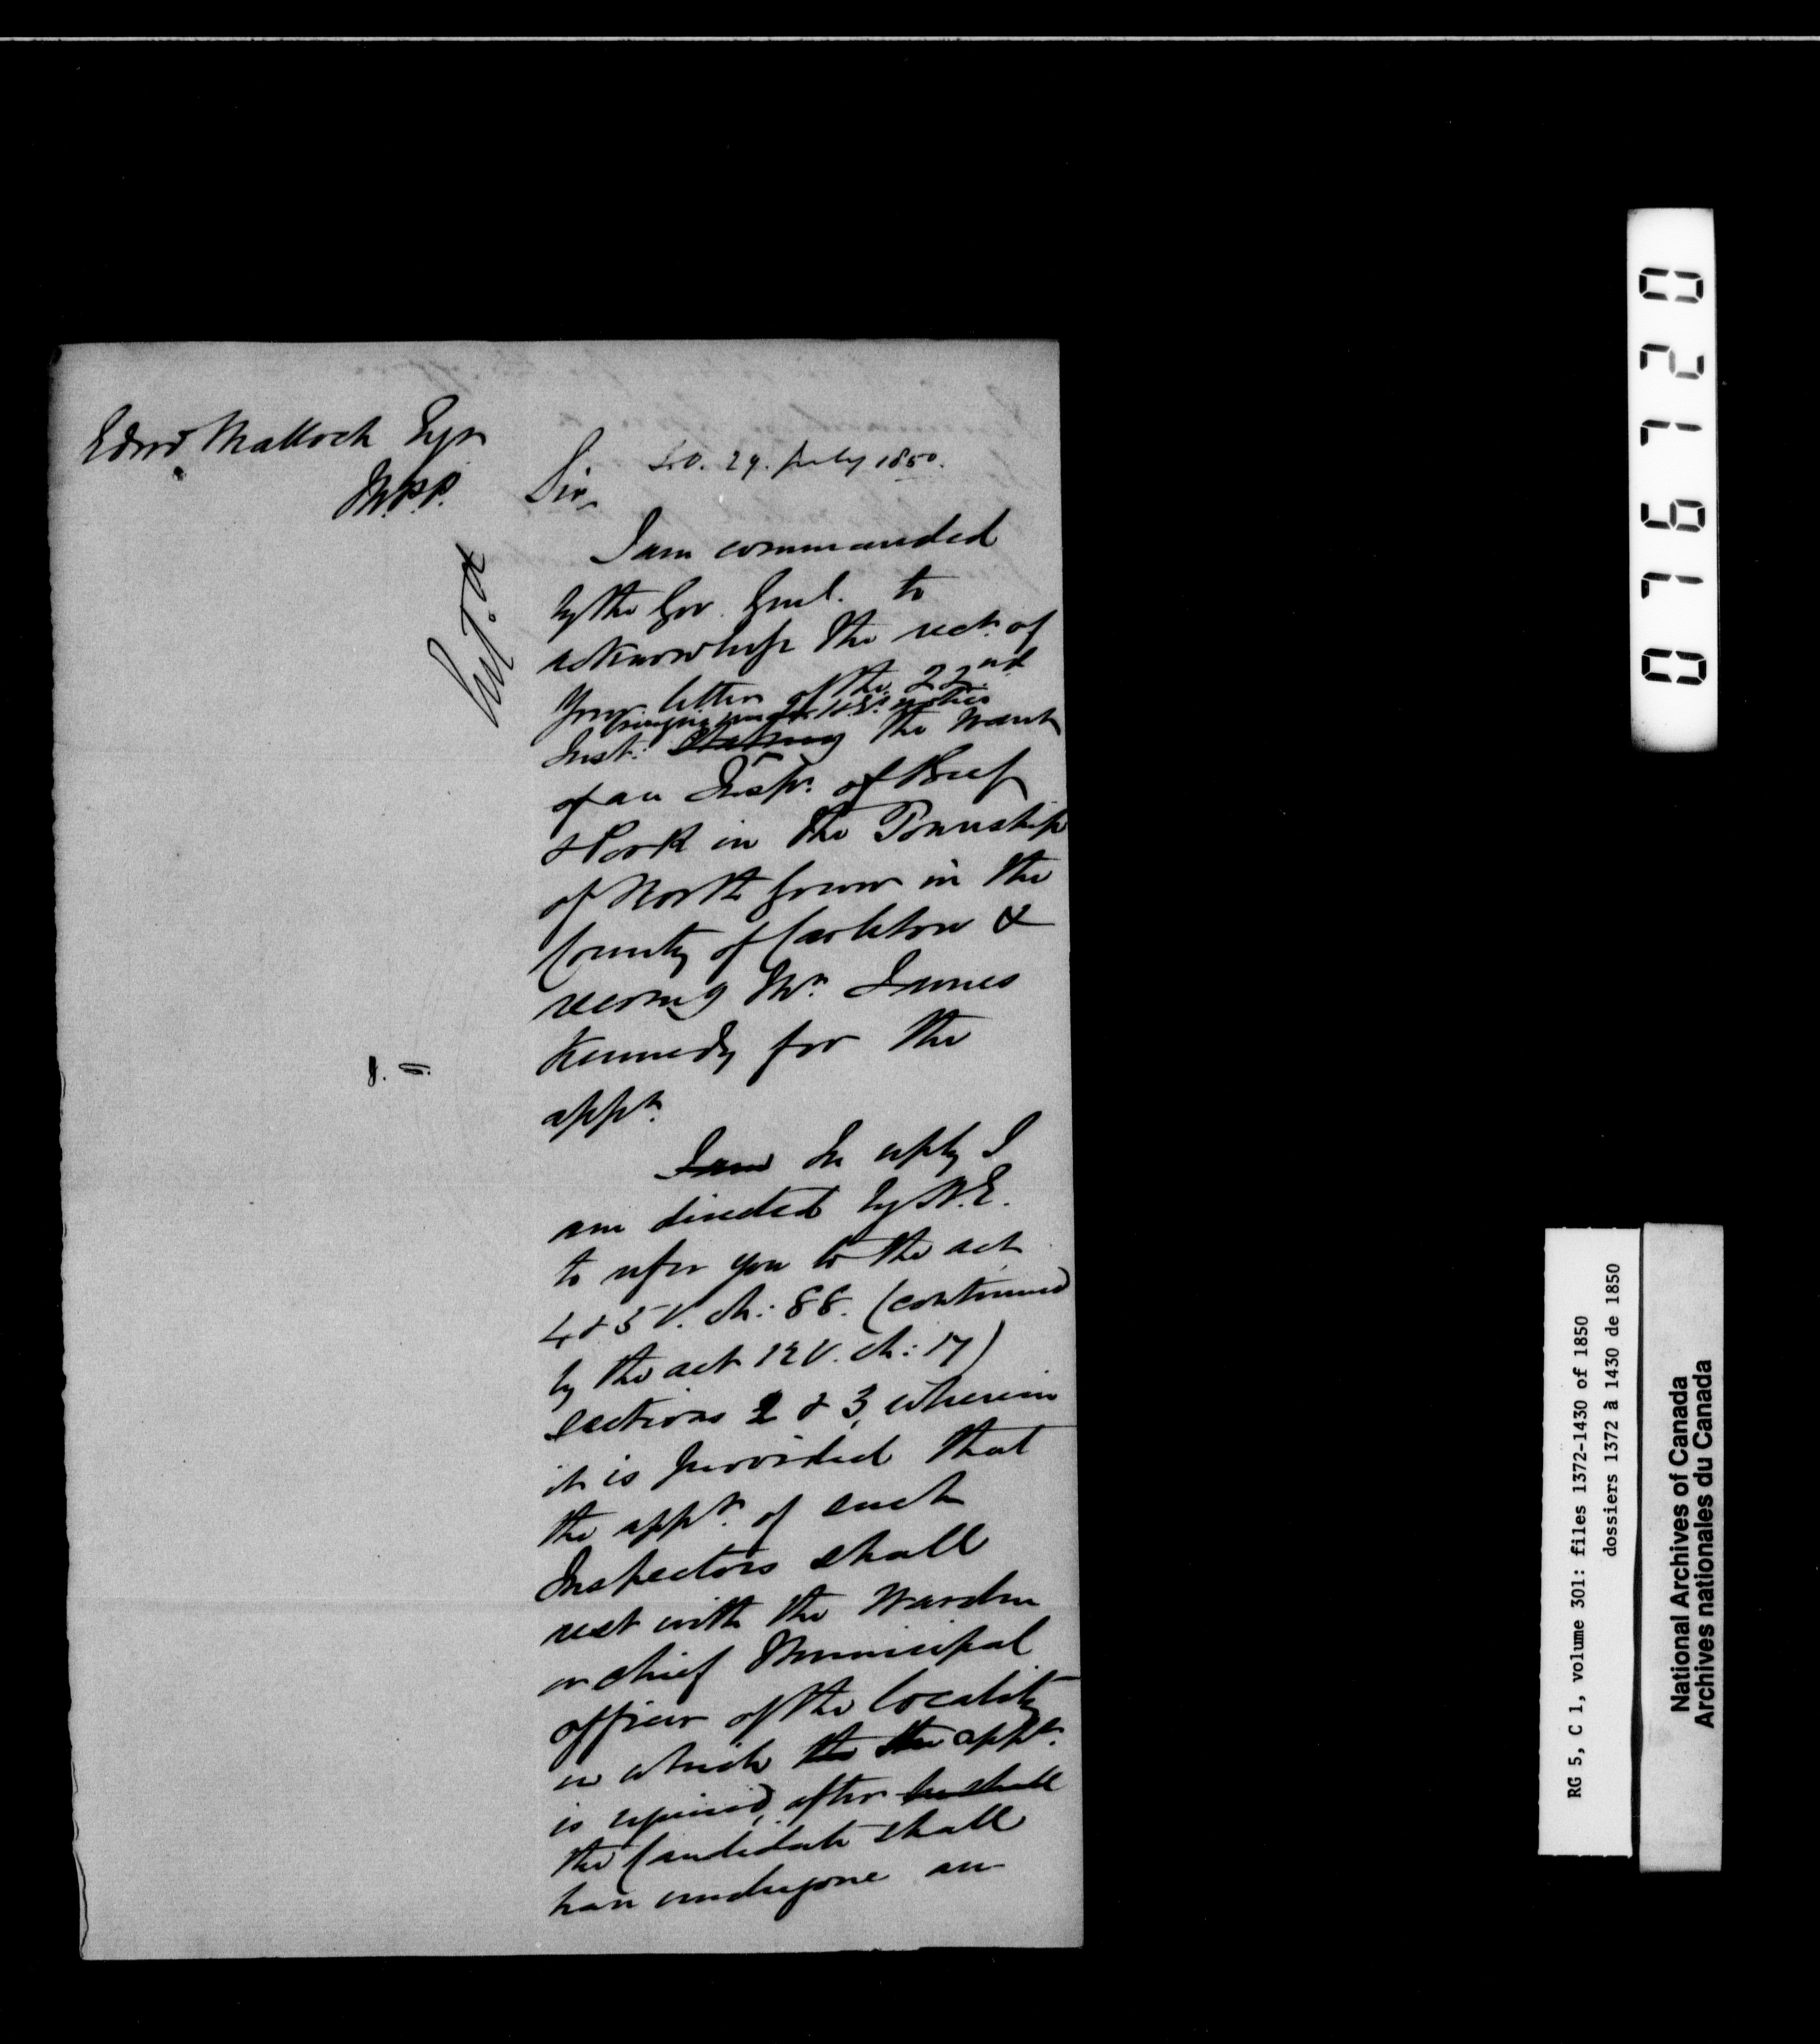 Edwd Malloch Esqr
M.P.P.
S.O. 29. July 1850.
Sir,
I am commanded
by the Gov. Genl. to
acknowledge the rect. of
your letter of the 22nd
bringing under H.E's notice
Inst. Stating the want
of an Inspr. of Beef
& Pork in the Township
of North Gower in the
County of Carleton &
recomg Mr. James
Kennedy for the
appt.
I am In reply I
am directed by H.E.
to refer you to the act
4 & 5 V. ch: 88. (continued
by the act 12 V. ch: 17)
sections 2 & 3, wherein
it is provided that
the appt. of such
Inspectors shall
rest with the Warden
or chief Municipal
officer of the locality
in which the appt.
is required, after he shall
the Candidate shall
have undergone an
076720
RG 5, C 1, volume 301: files 1372-1430 of 1850
dossiers 1372 à 1430 de 1850
National Archives of Canada
Archives nationales du Canada